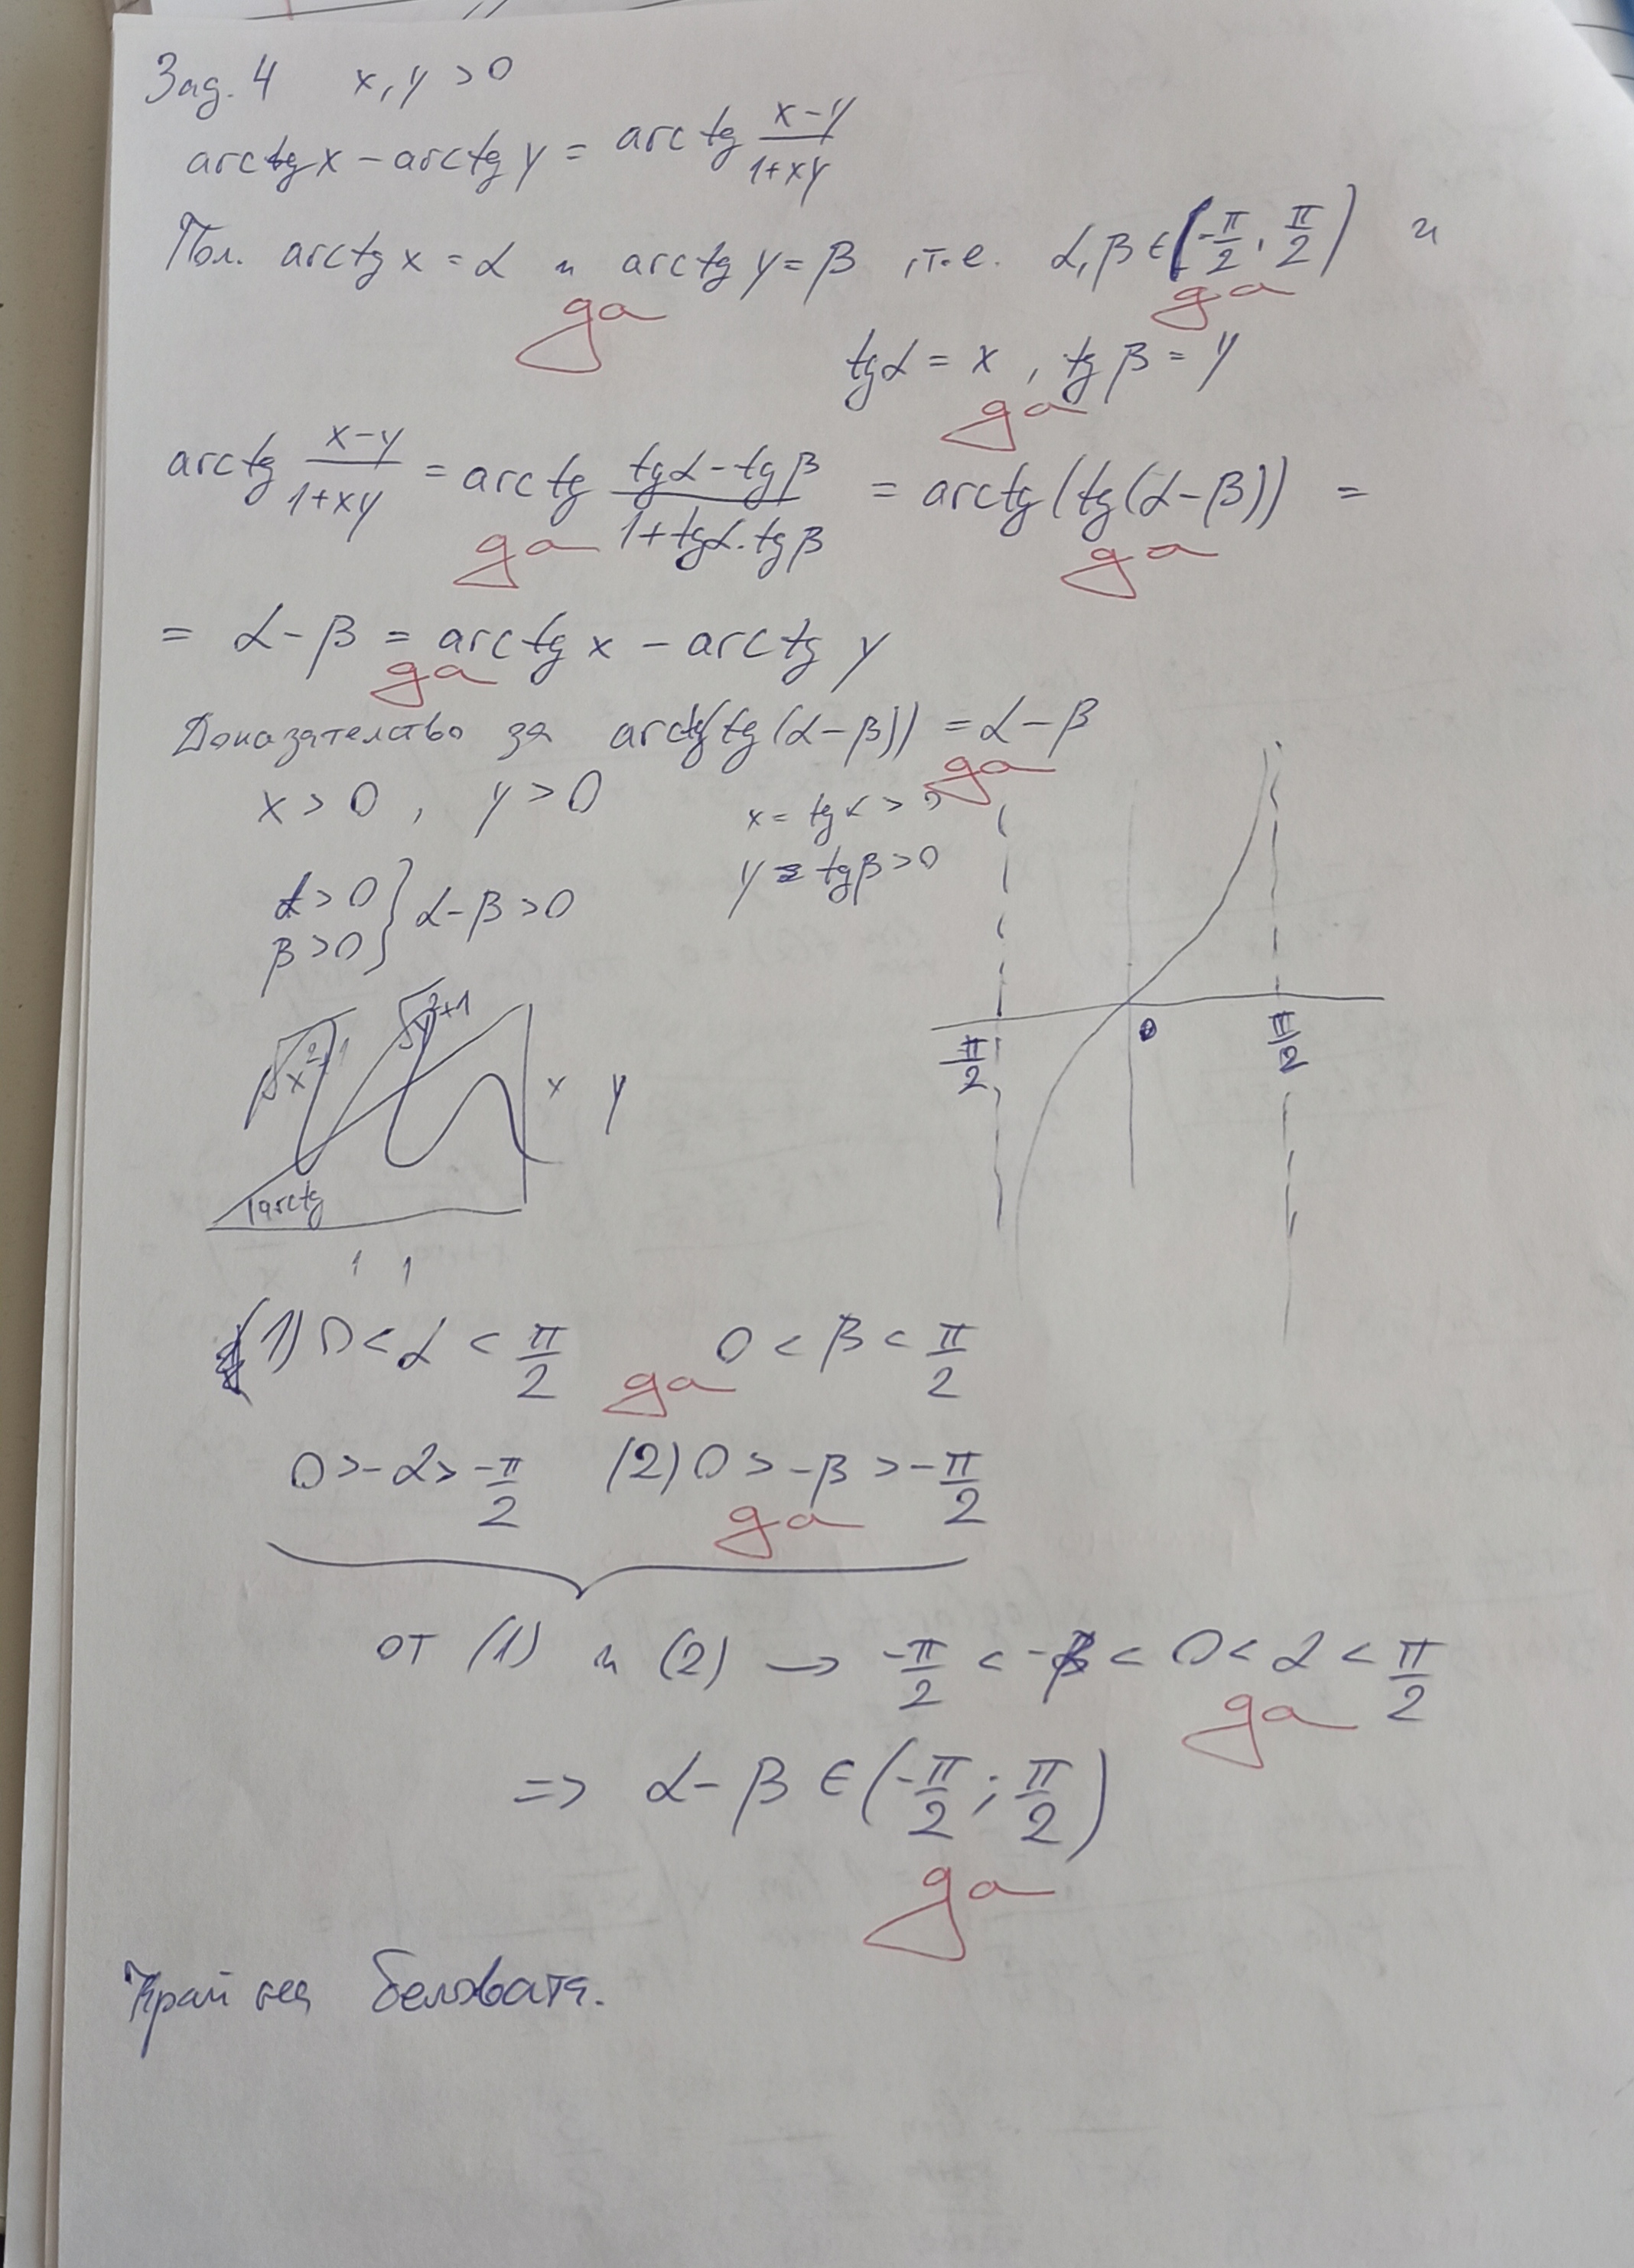 Зад. 4 x, y > 0
arctg x − arctg y = arctg (x−y)/(1+xy)
Пол. arctg x = α и arctg y = β , т.е. α, β ∈ (−π/2, π/2) и
да да
tg α = x , tg β = y
да
arctg (x−y)/(1+xy) = arctg (tg α − tg β)/(1 + tg α . tg β) = arctg (tg (α−β)) =
да да
= α − β = arctg x − arctg y
да
Доказателство за arctg(tg (α−β)) = α − β
да
x > 0 , y > 0 x = tg α > 0
y = tg β > 0
α > 0 } α − β > 0
β > 0
√x²+1 √y²+1
x y
arctg
1 1
π/2 0 π/2
(1) 0 < α < π/2 0 < β < π/2
да
0 > −α > −π/2 (2) 0 > −β > −π/2
да
от (1) и (2) → −π/2 < −β < 0 < α < π/2
да
=> α − β ∈ (−π/2 ; π/2)
да
Край на